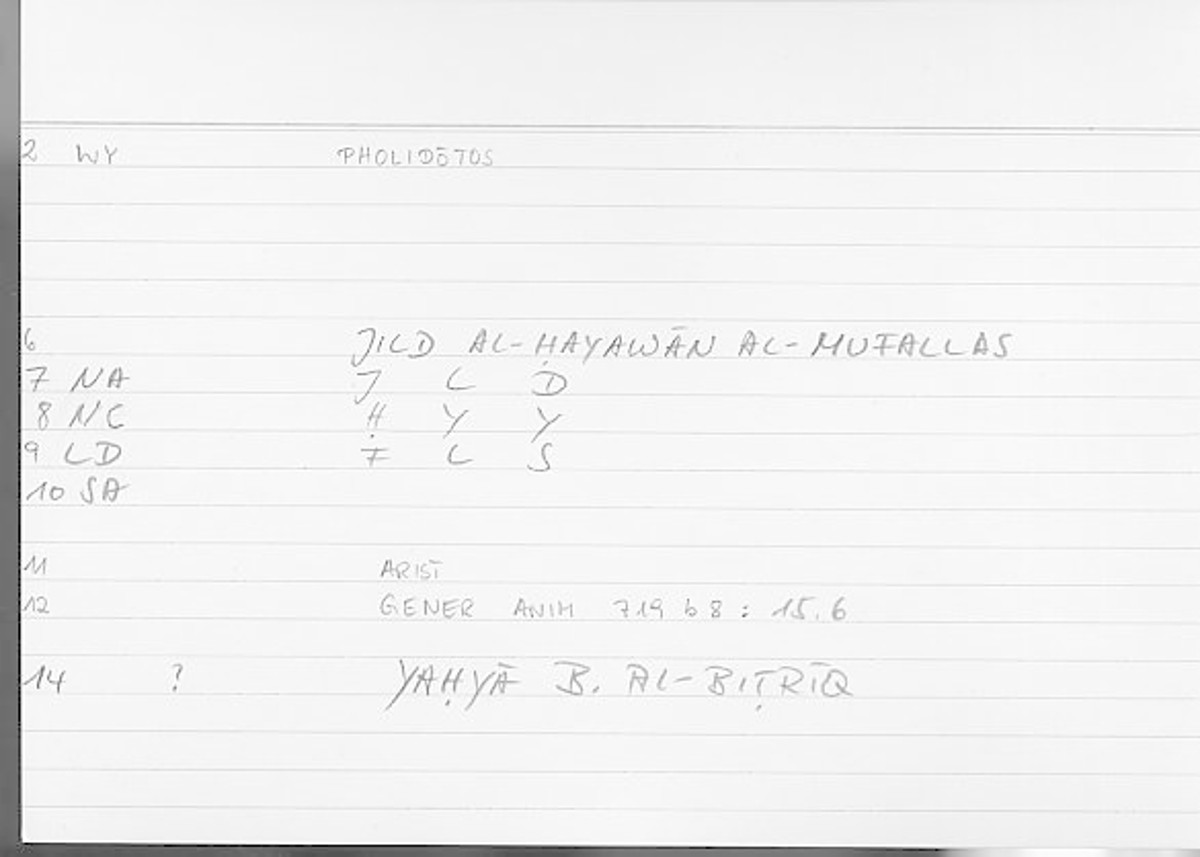 2 WY PHOLIDŌTOS
6 JILD AL-ḤAYAWĀN AL-MUFALLAS
7 NA J L D
8 NC Ḥ Y Y
9 LD F L S
10 SA
11 ARIST
12 GENER ANIM 719 b 8 : 15.6
14 ? YAḤYĀ B. AL-BIṬRĪQ